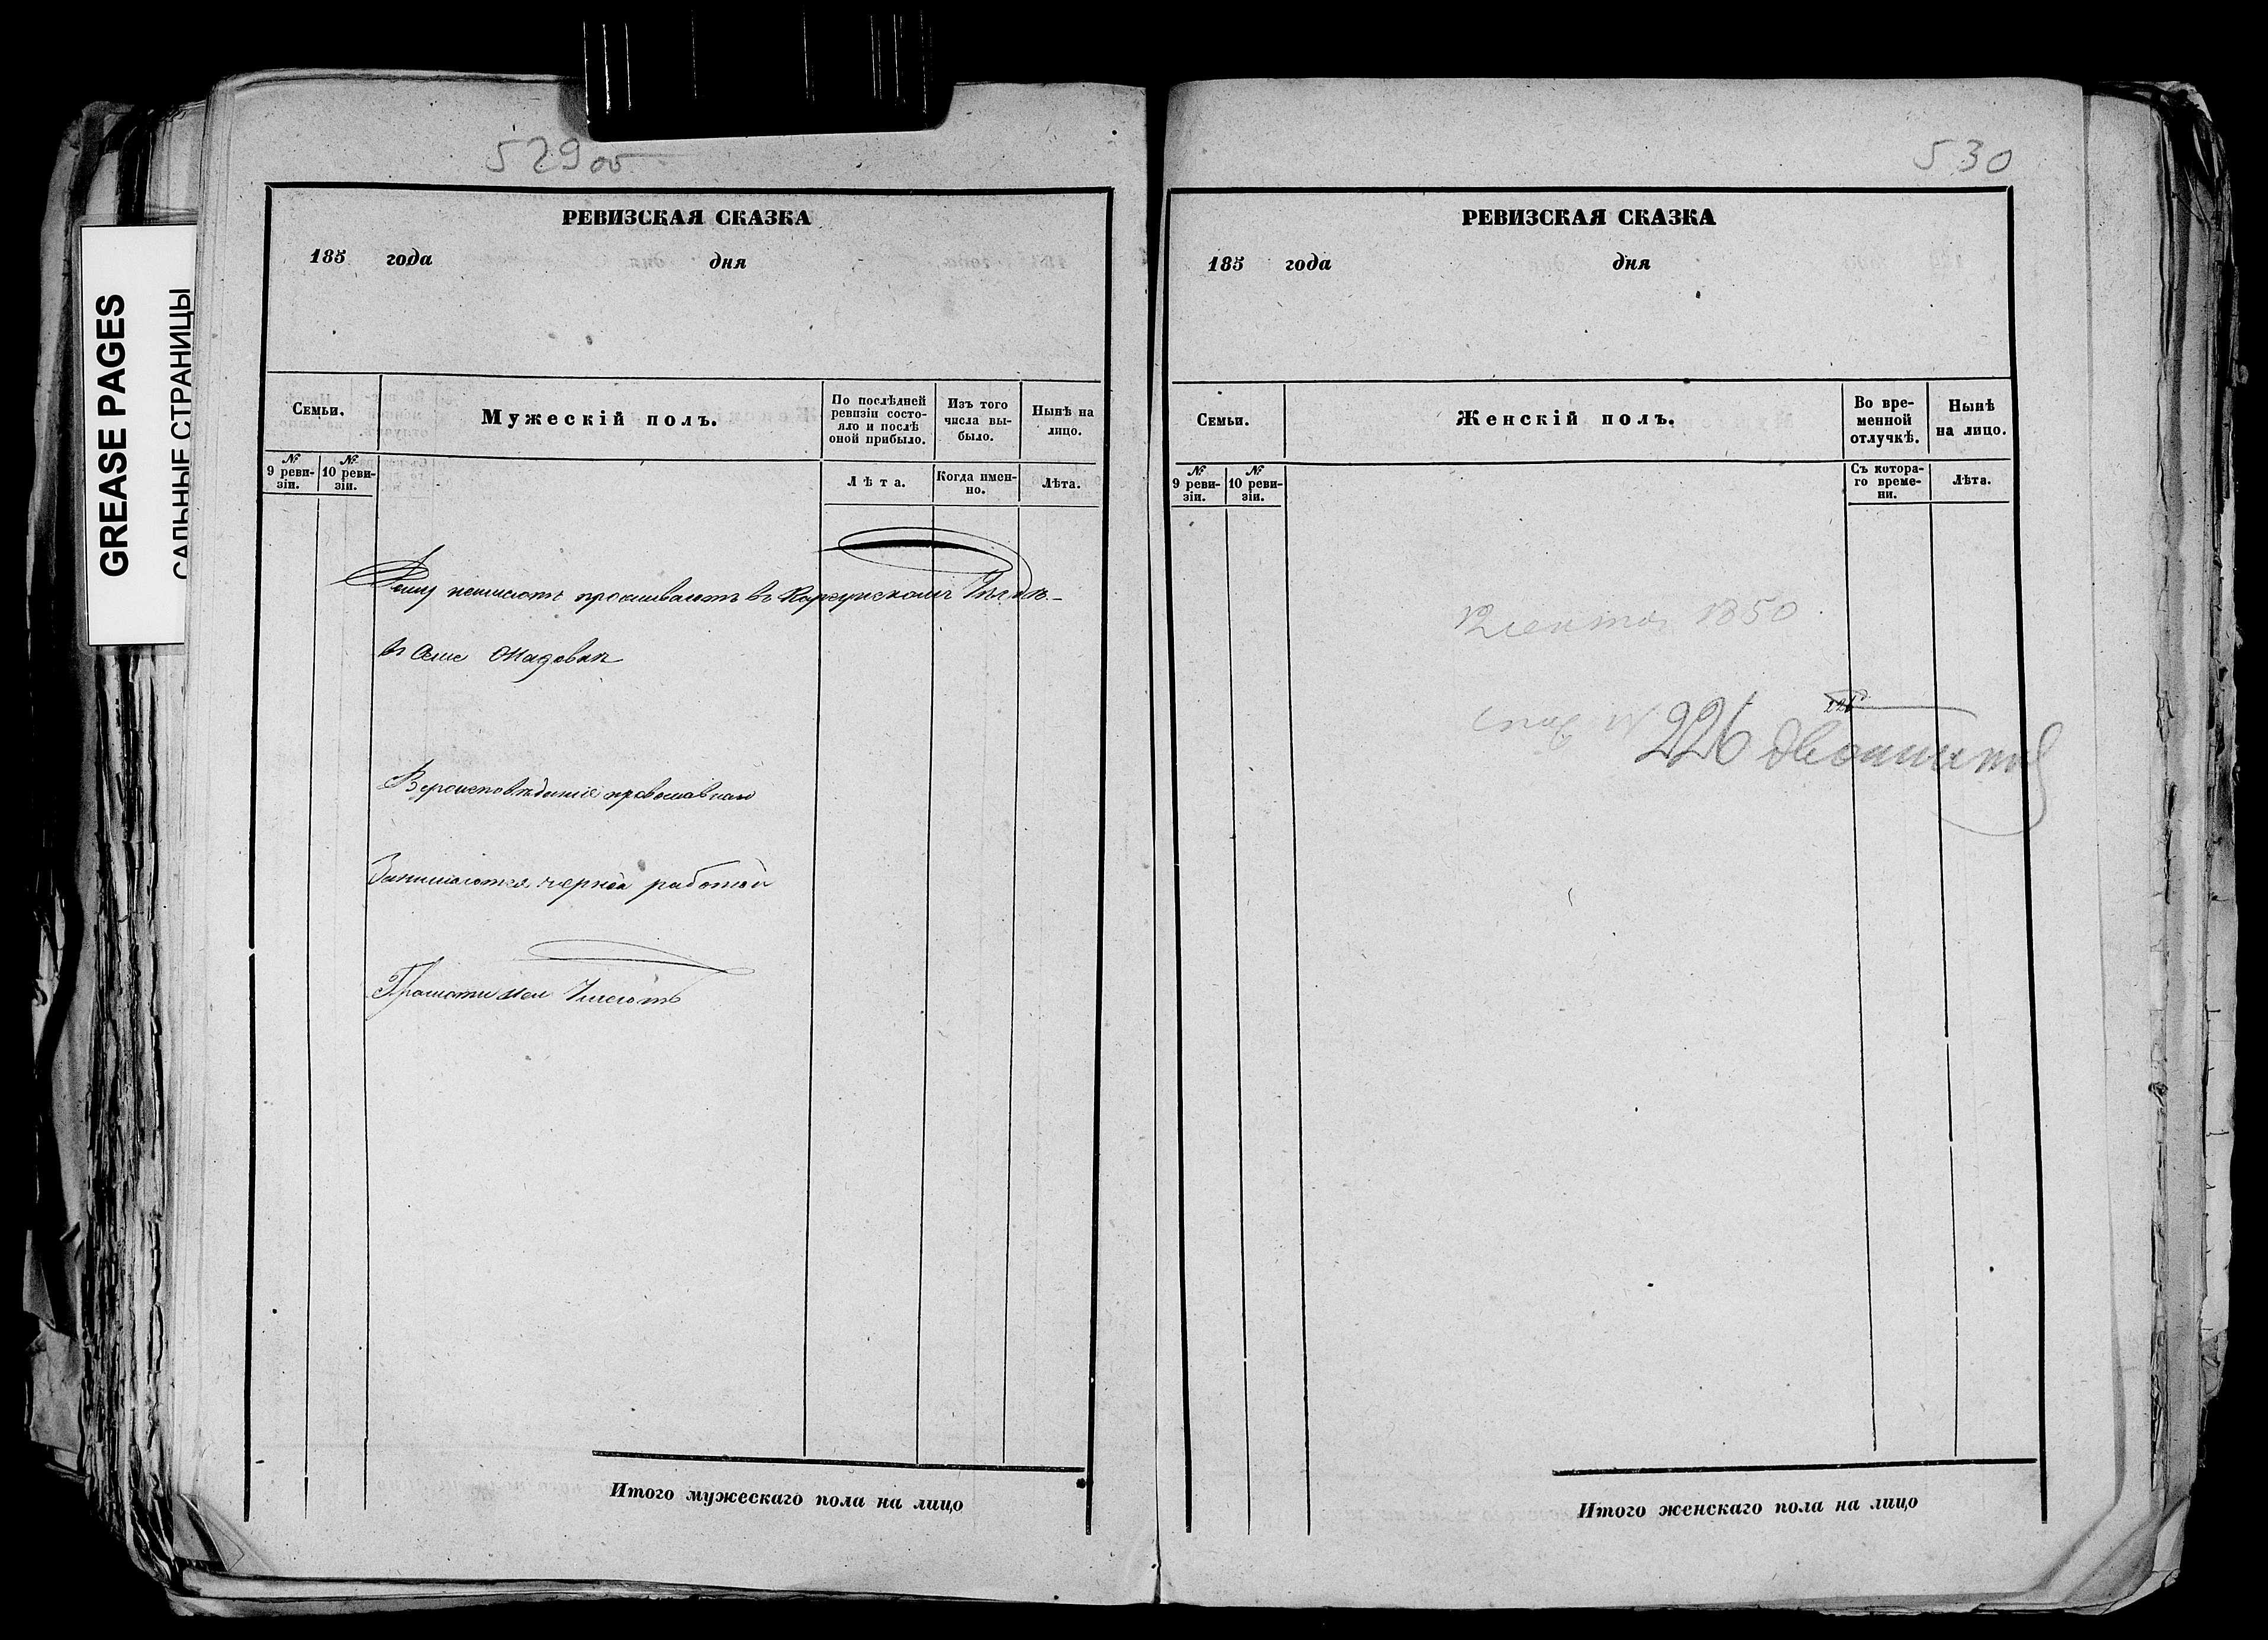 GREASE PAGES
САЛЬНЫЕ СТРАНИЦЫ
529об
РЕВИЗСКАЯ СКАЗКА
185 года дня
Семьи.
Мужескій полъ.
По послѣдней ревизіи состо-
яло и послѣ оной прибыло.
Изъ того числа вы-
было.
Нынѣ на лицо.
№ 9 реви-
зіи.
№ 10 реви-
зіи.
Лѣта.
Когда имен-
но.
Лѣта.
проживаютъ въ
въ Селе
Вероисповѣданіе православнаго
Занимаются черной работой
Грамоти
530
РЕВИЗСКАЯ СКАЗКА
185 года дня
Семьи.
Женскій полъ.
Во вре-
менной
отлучкѣ.
Нынѣ
на лицо.
№ 9 реви-
зіи.
№ 10 реви-
зіи.
Съ котора-
го време-
ни.
Лѣта.
1850
226
Итого мужескаго пола на лицо
Итого женскаго пола на лицо